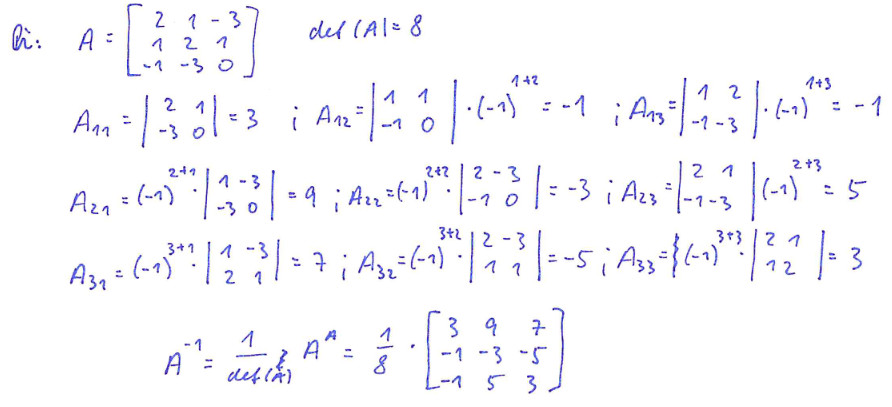 Př: A = [ 2 1 -3 ; 1 2 1 ; -1 -3 0 ] det(A|= 8
A₁₁ = | 2 1 ; -3 0 | = 3 ; A₁₂ = | 1 1 ; -1 0 | · (-1)¹⁺² = -1 ; A₁₃ = | 1 2 ; -1 -3 | · (-1)¹⁺³ = -1
A₂₁ = (-1)²⁺¹ · | 1 -3 ; -3 0 | = 9 ; A₂₂ = (-1)²⁺² · | 2 -3 ; -1 0 | = -3 ; A₂₃ = | 2 1 ; -1 -3 | (-1)²⁺³ = 5
A₃₁ = (-1)³⁺¹ · | 1 -3 ; 2 1 | = 7 ; A₃₂ = (-1)³⁺² · | 2 -3 ; 1 1 | = -5 ; A₃₃ = (-1)³⁺³ · | 2 1 ; 1 2 | = 3
A⁻¹ = 1/det(A) Aᴬ = 1/8 · [ 3 9 7 ; -1 -3 -5 ; -1 5 3 ]